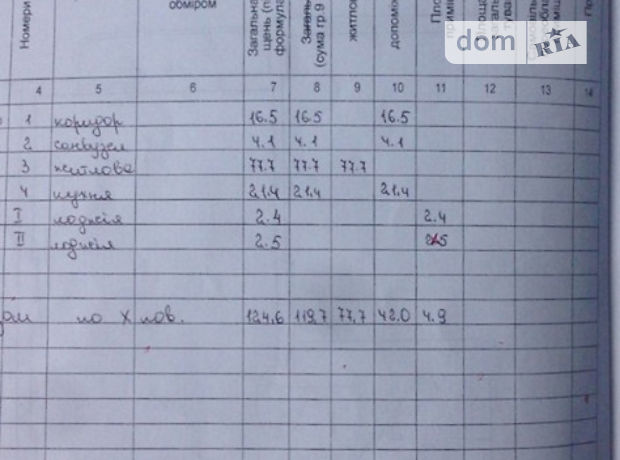 обміром
Номери
Загальна
щень (п
формула
Загаль
(сума гр.9
житлов
допоміж
dom RIA
4 5 6 7 8 9 10 11 12 13 14
1 коридор 16.5 16.5 16.5
2 санвузел 4.1 4.1 4.1
3 житлова 77.7 77.7 77.7
4 кухня 21.4 21.4 21.4
I лоджія 2.4 2.4
II лоджія 2.5 2.5
по X пов. 124.6 119.7 77.7 42.0 4.9